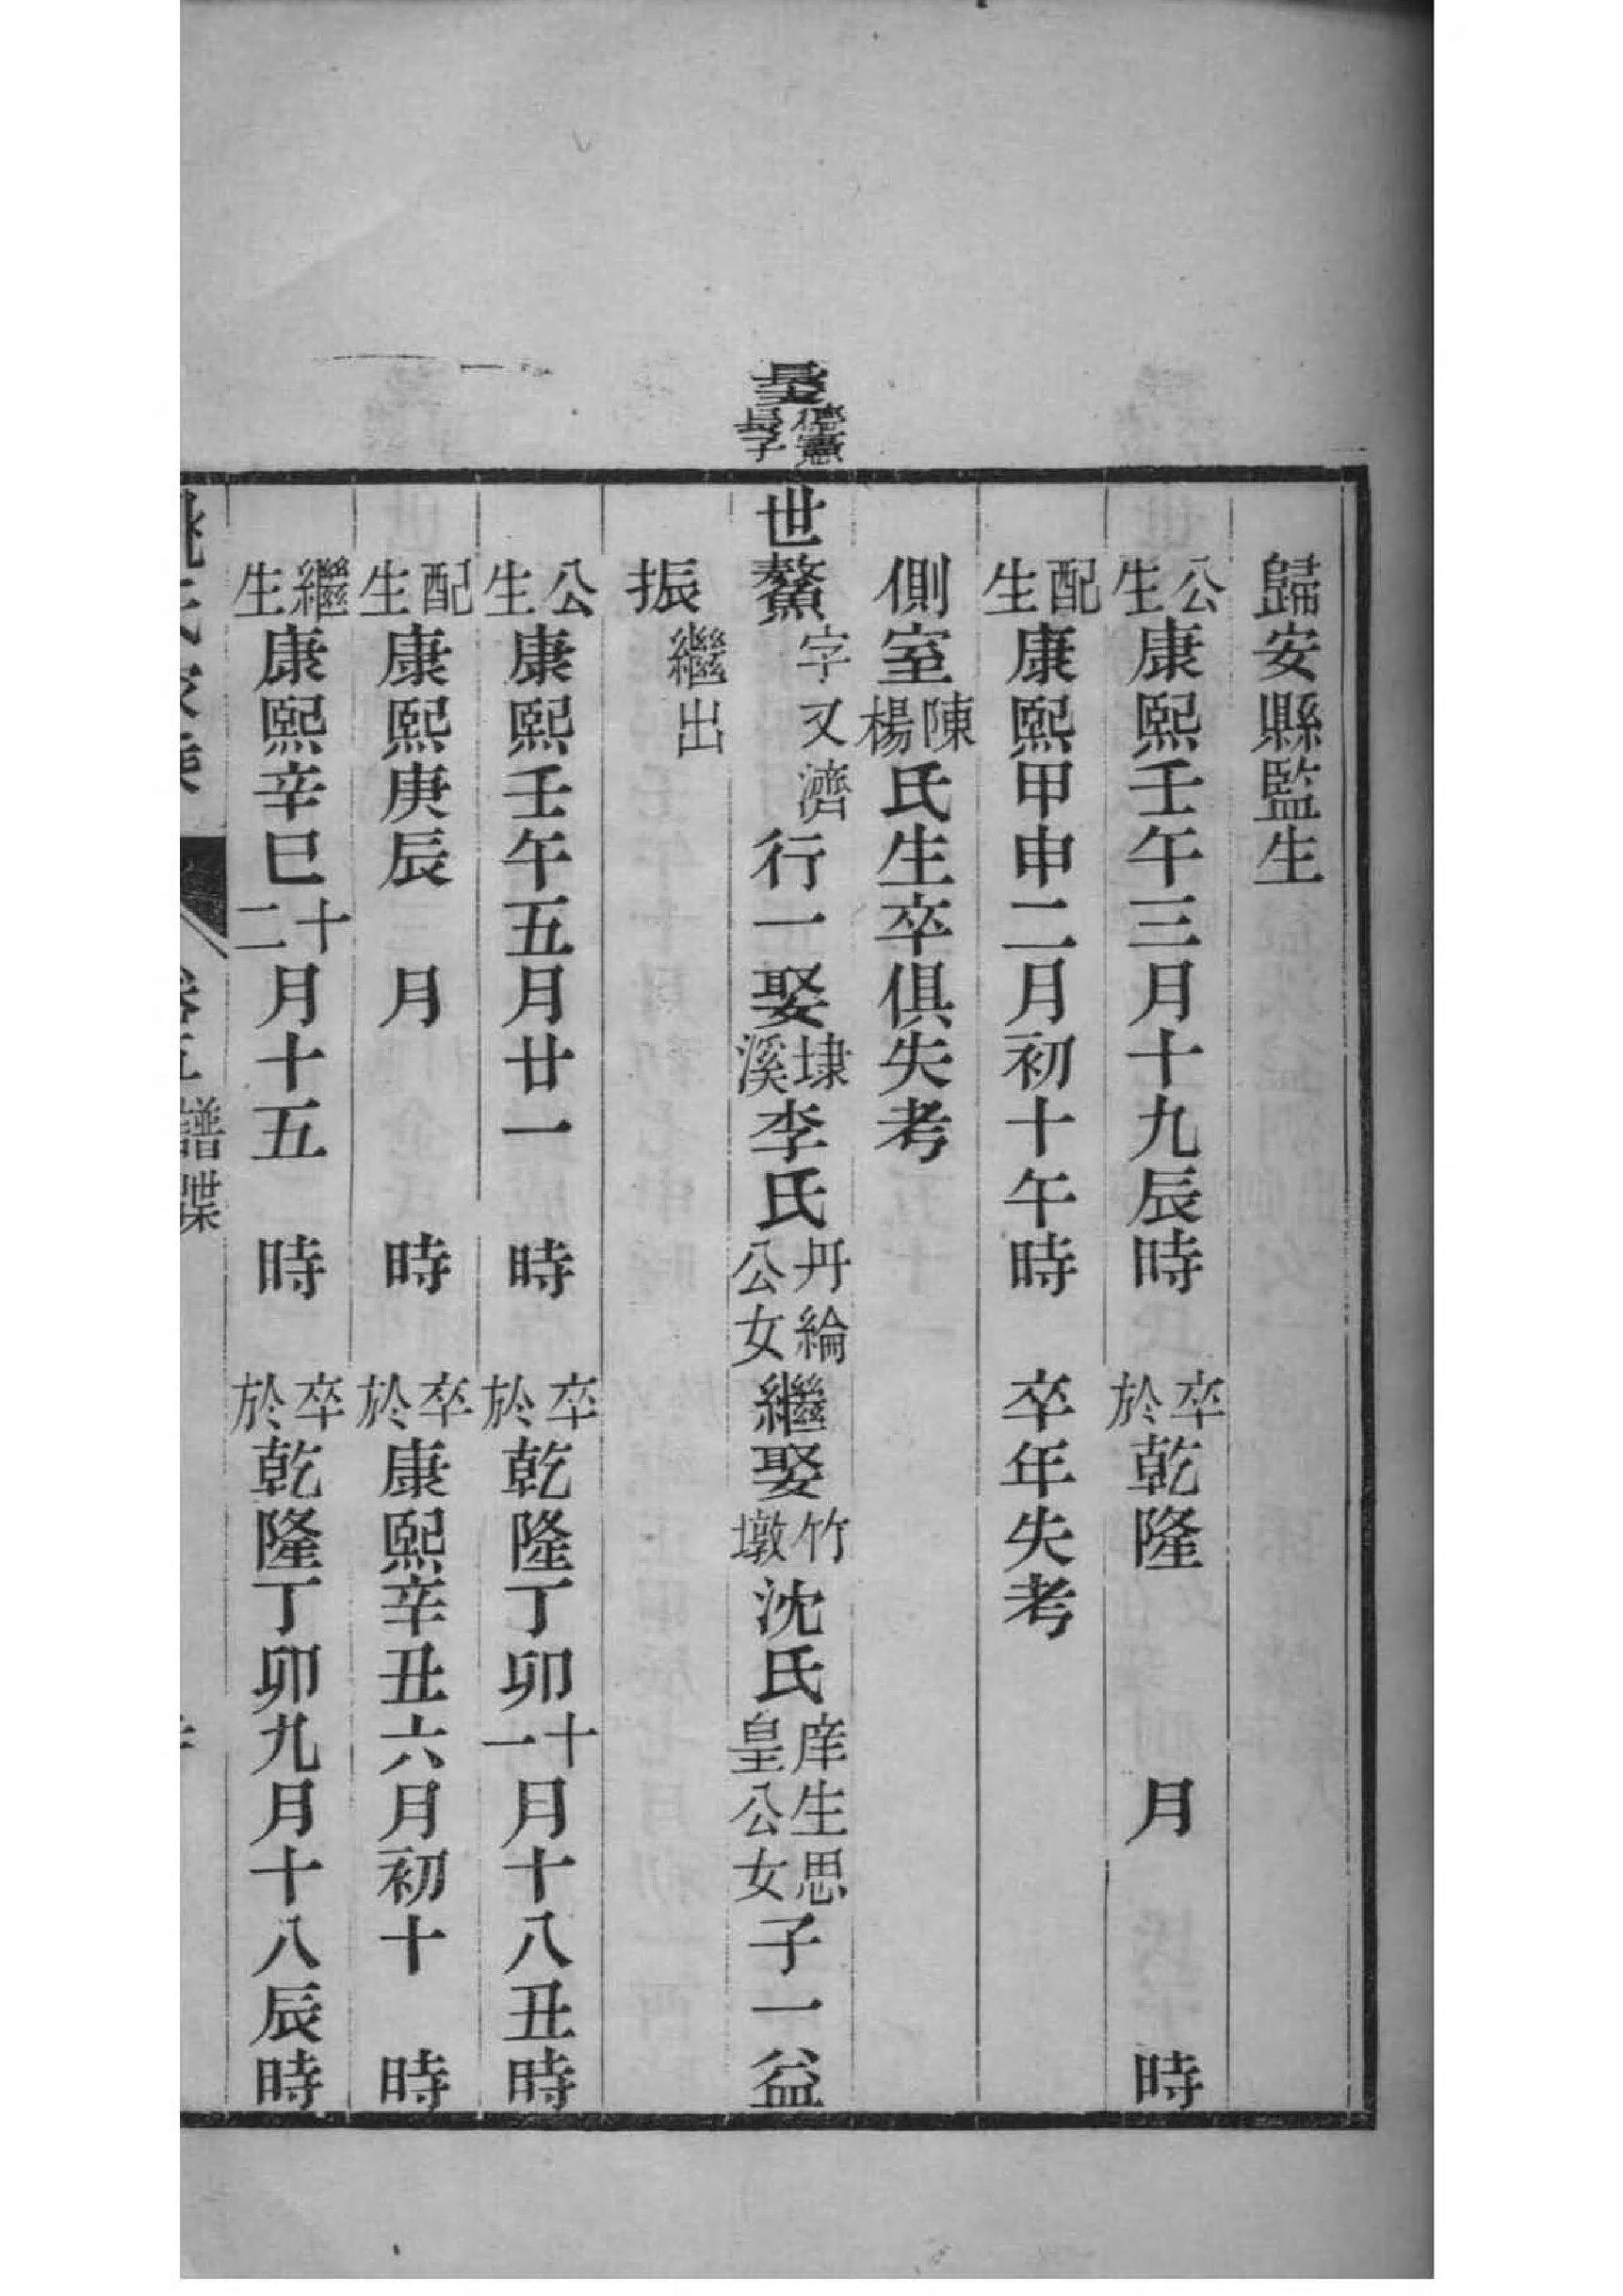 歸安縣監生
公生康熙壬午三月十九辰時 卒於乾隆 月 時
配生康熙甲申二月初十午時 卒年失考
側室陳楊氏生卒俱失考
德憲長子
世鰲字又濟行一娶埭溪李氏丹綸公女繼娶竹墩沈氏庠生思皇公女子一益
振繼出
公生康熙壬午五月廿一 時 卒於乾隆丁卯十一月十八丑時
配生康熙庚辰 月 時 卒於康熙辛丑六月初十 時
繼生康熙辛巳十二月十五 時 卒於乾隆丁卯九月十八辰時
姚氏家乘 卷五 譜牒